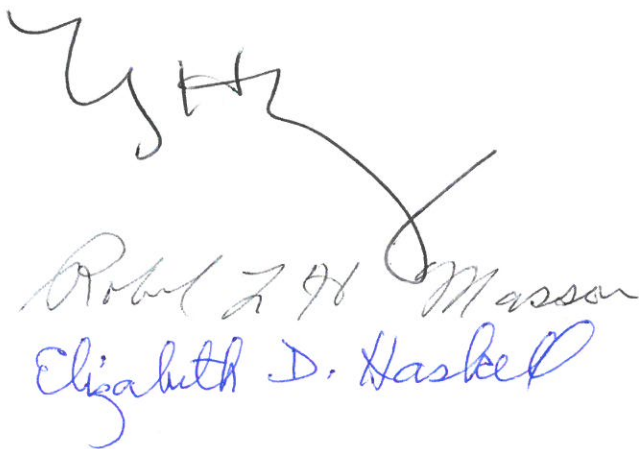 Robert L H Masson
Elizabeth D. Haskell